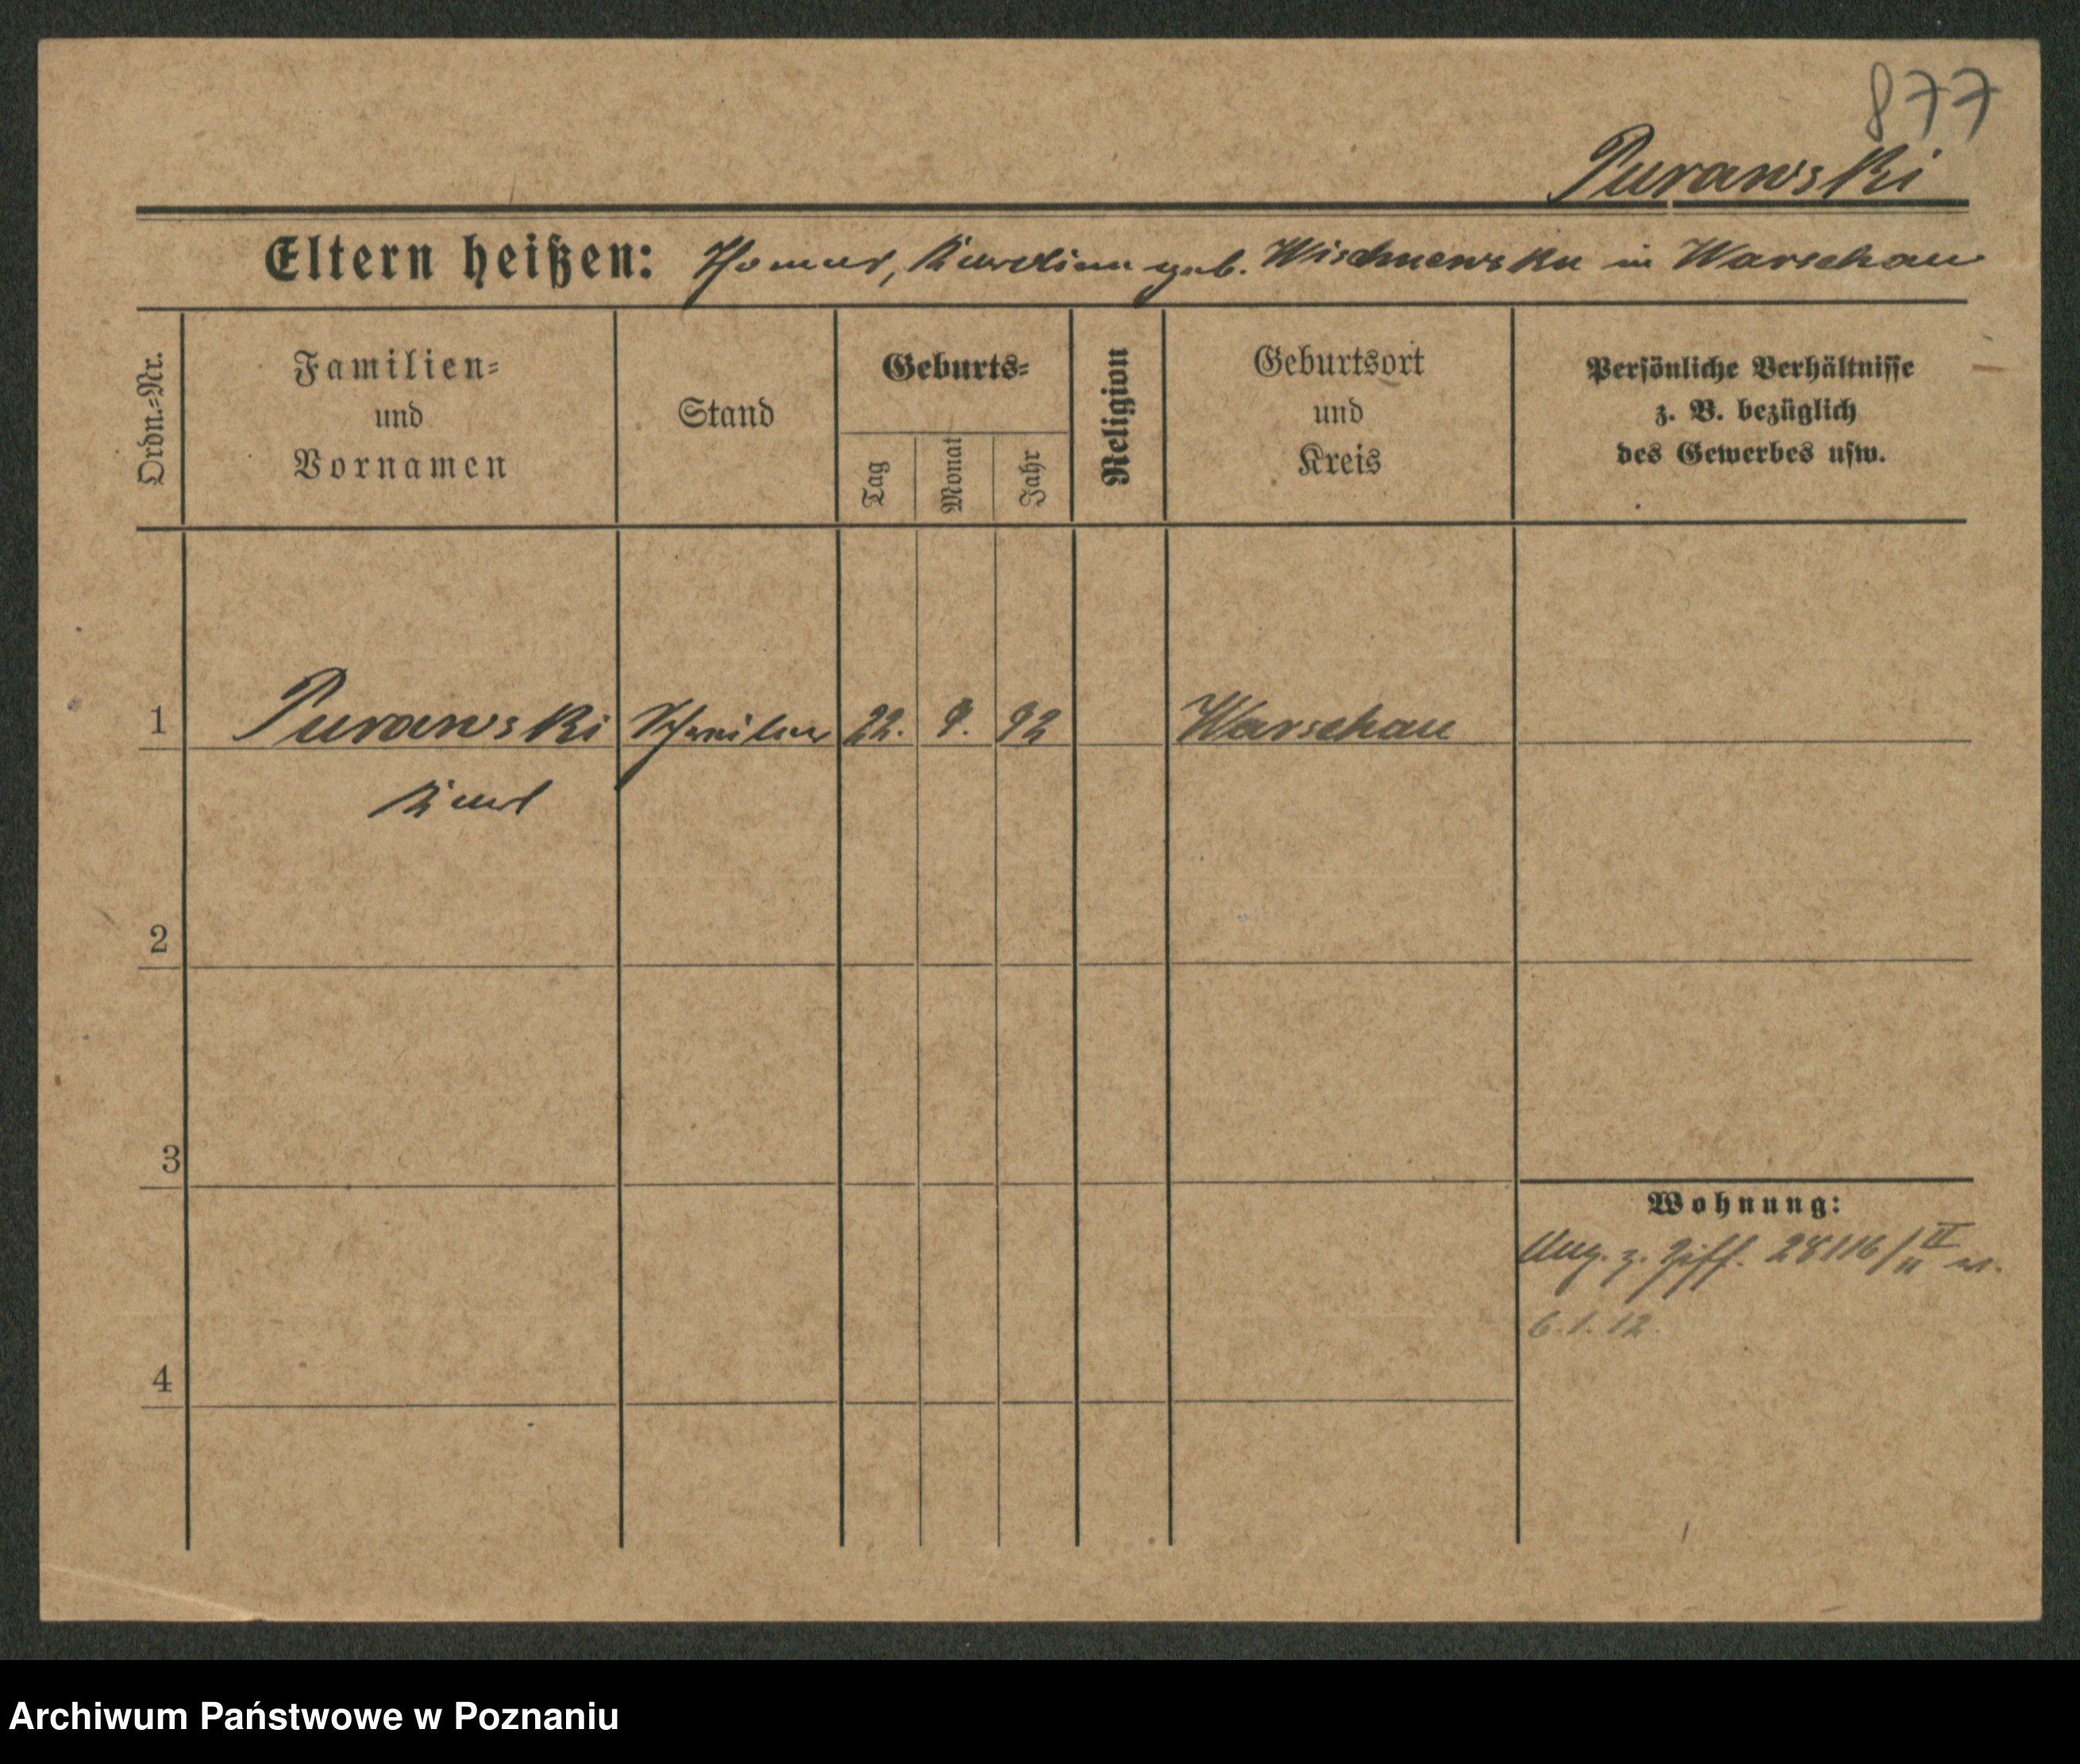 877
Purawski
Eltern heißen: Thomas, Karolina geb. Wischnewska in Warschau
Ordn.=Nr.
Familien=
und
Vornamen
Stand
Geburts=
Tag
Monat
Jahr
Religion
Geburtsort
und
Kreis
Persönliche Verhältnisse
z. B. bezüglich
des Gewerbes usw.
1 Purawski 22. 9. 92 Warschau
Karl
2
3
Wohnung:
z. Ziff. 28116/II
6.1.12.
4
Archiwum Państwowe w Poznaniu